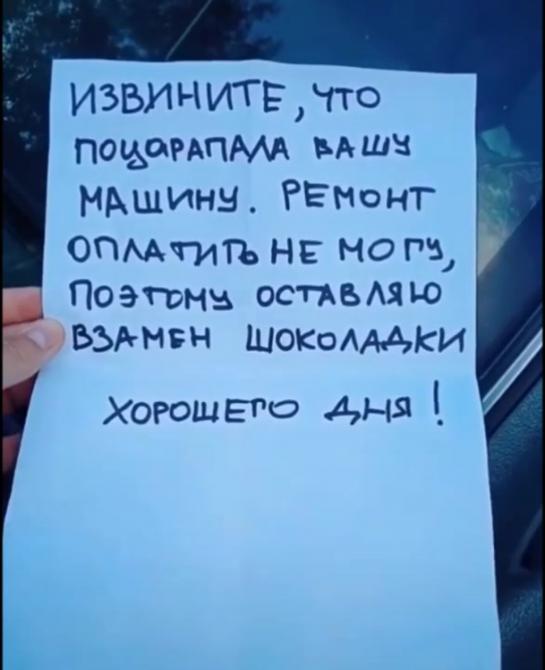 ИЗВИНИТЕ, ЧТО
ПОЦАРАПАЛА ВАШУ
МАШИНУ. РЕМОНТ
ОПЛАТИТЬ НЕ МОГУ,
ПОЭТОМУ ОСТАВЛЯЮ
ВЗАМЕН ШОКОЛАДКИ
ХОРОШЕГО ДНЯ!